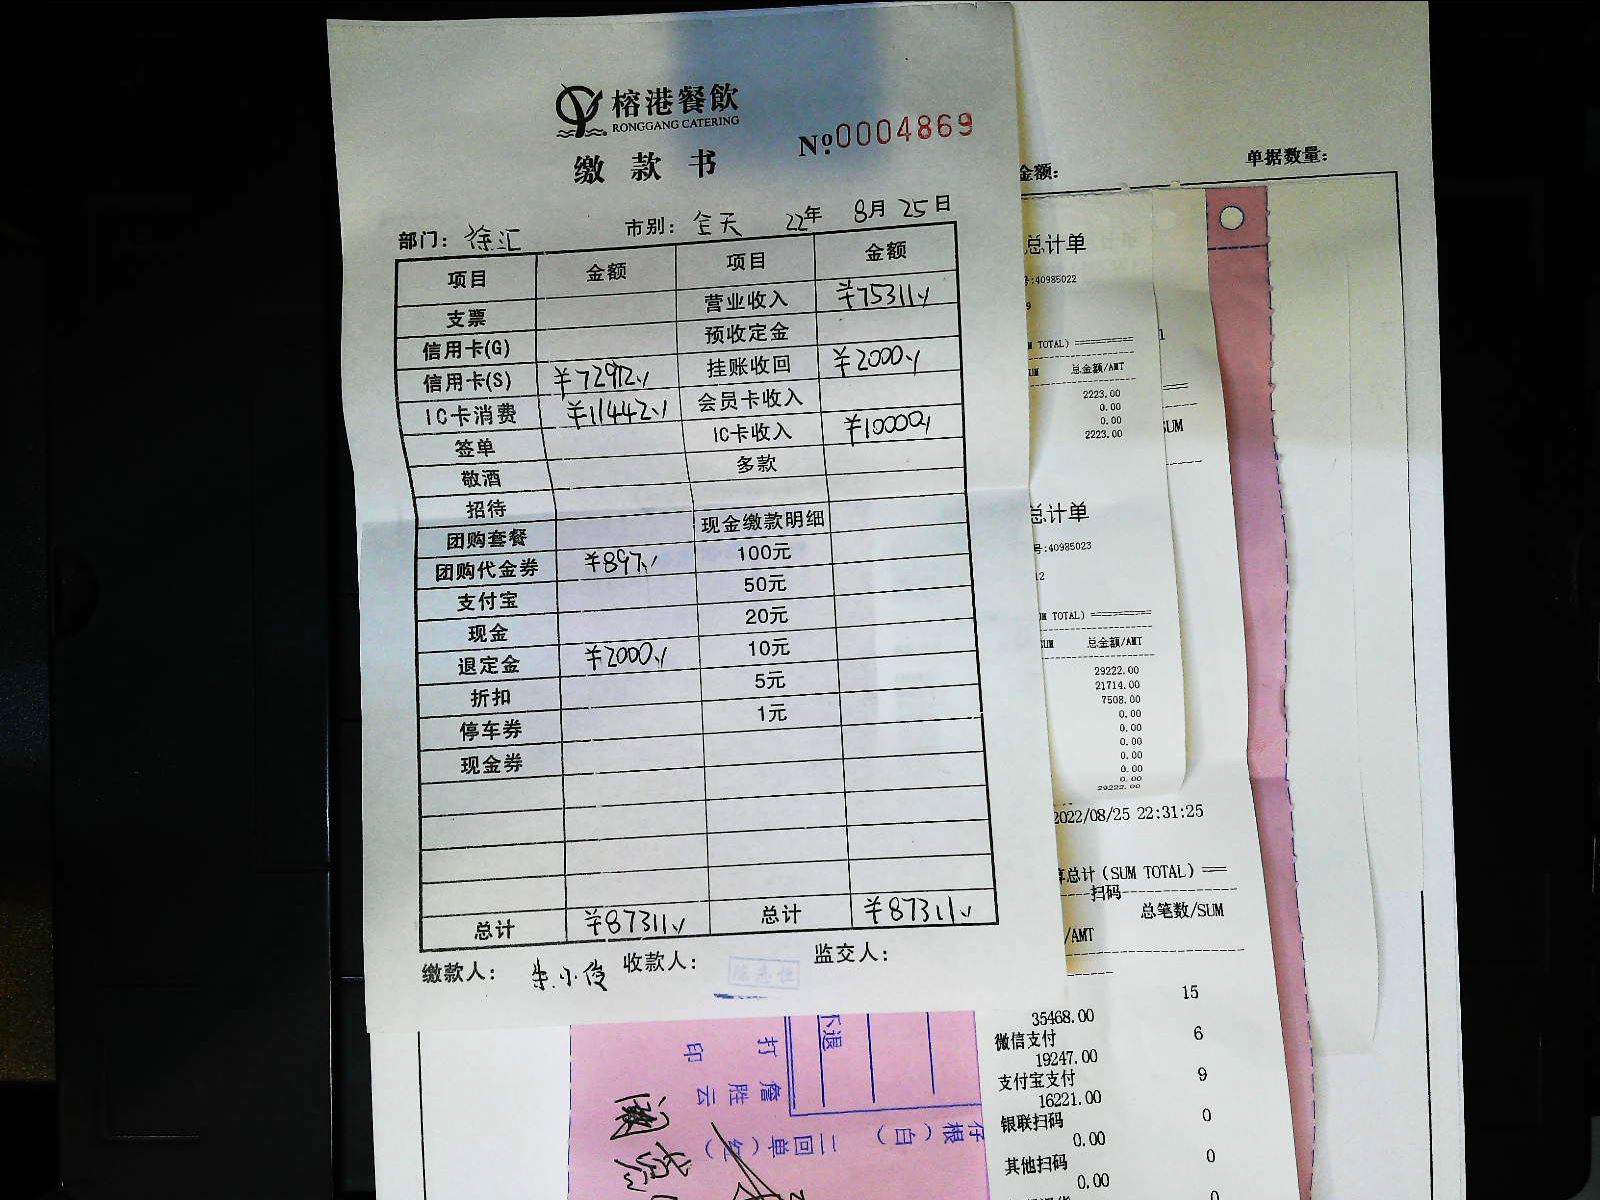 榕港餐飲
RONGGANG CATERING
缴款书
№0004869
部门：徐汇 市别：全天 22年 8月 25日
项目 金额 项目 金额
支票 营业收入 ¥75311
信用卡(G) 预收定金
信用卡(S) ¥72972 挂账收回 ¥2000
IC卡消费 ¥11442 会员卡收入
签单 IC卡收入 ¥10000
敬酒 多款
招待
团购套餐 现金缴款明细
团购代金券 ¥897 100元
支付宝 50元
现金 20元
退定金 ¥2000 10元
折扣 5元
停车券 1元
现金券
总计 ¥87311 总计 ¥87311
缴款人：朱小俊 收款人： 监交人：
金额： 单据数量：
总计单
号:40985022
9
TOTAL)
总金额/AMT
2223.00
0.00
0.00
2223.00
SUM
总计单
号:40985023
12
UM TOTAL)
SUM 总金额/AMT
29222.00
21714.00
7508.00
0.00
0.00
0.00
0.00
0.00
29222.00
2022/08/25 22:31:25
总计(SUM TOTAL)
扫码
总笔数/SUM
/AMT
15
35468.00
微信支付 6
19247.00
支付宝支付 9
16221.00
银联扫码 0
0.00
其他扫码 0
0.00
0
不退
打印
詹胜云
仔根(白) 二回单(红)